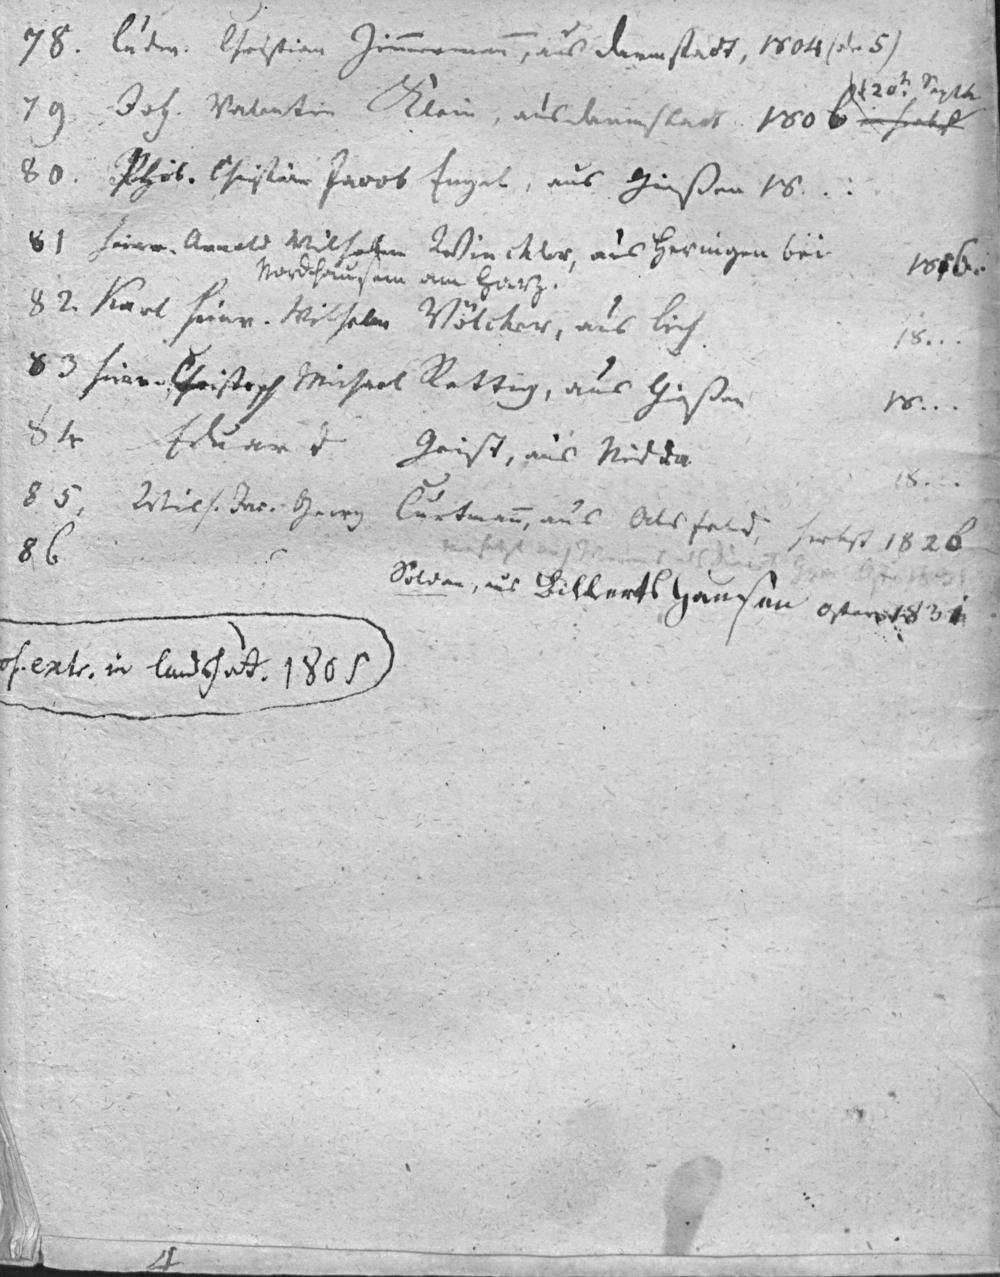 78. Ludw. Christian Zimmermann, aus Darmstadt, 1804 (od. 5)
20t. Septb.
79 Joh. Valentin Klein, aus Darmstadt 1806 im Herbst
80. Phil. Christian Jacob Engel, aus Gießen 18...
81 Heinr. Arnold Wilhelm Winckler, aus Heringen bei
Nordhausen am Harz. 18
82. Karl Heinr. Wilhelm Völcker, aus Lich 18...
83 Heinr. Christoph Michael Rettig, aus Gießen 18...
84 Eduard Geist, aus Nidda 18...
85, Wilh. Jac. Georg Curtmann, aus Alsfeld, Herbst 1826
86 Soldan, aus Billertshausen Ostern 1831
of. extr. in Landshut. 1805
4